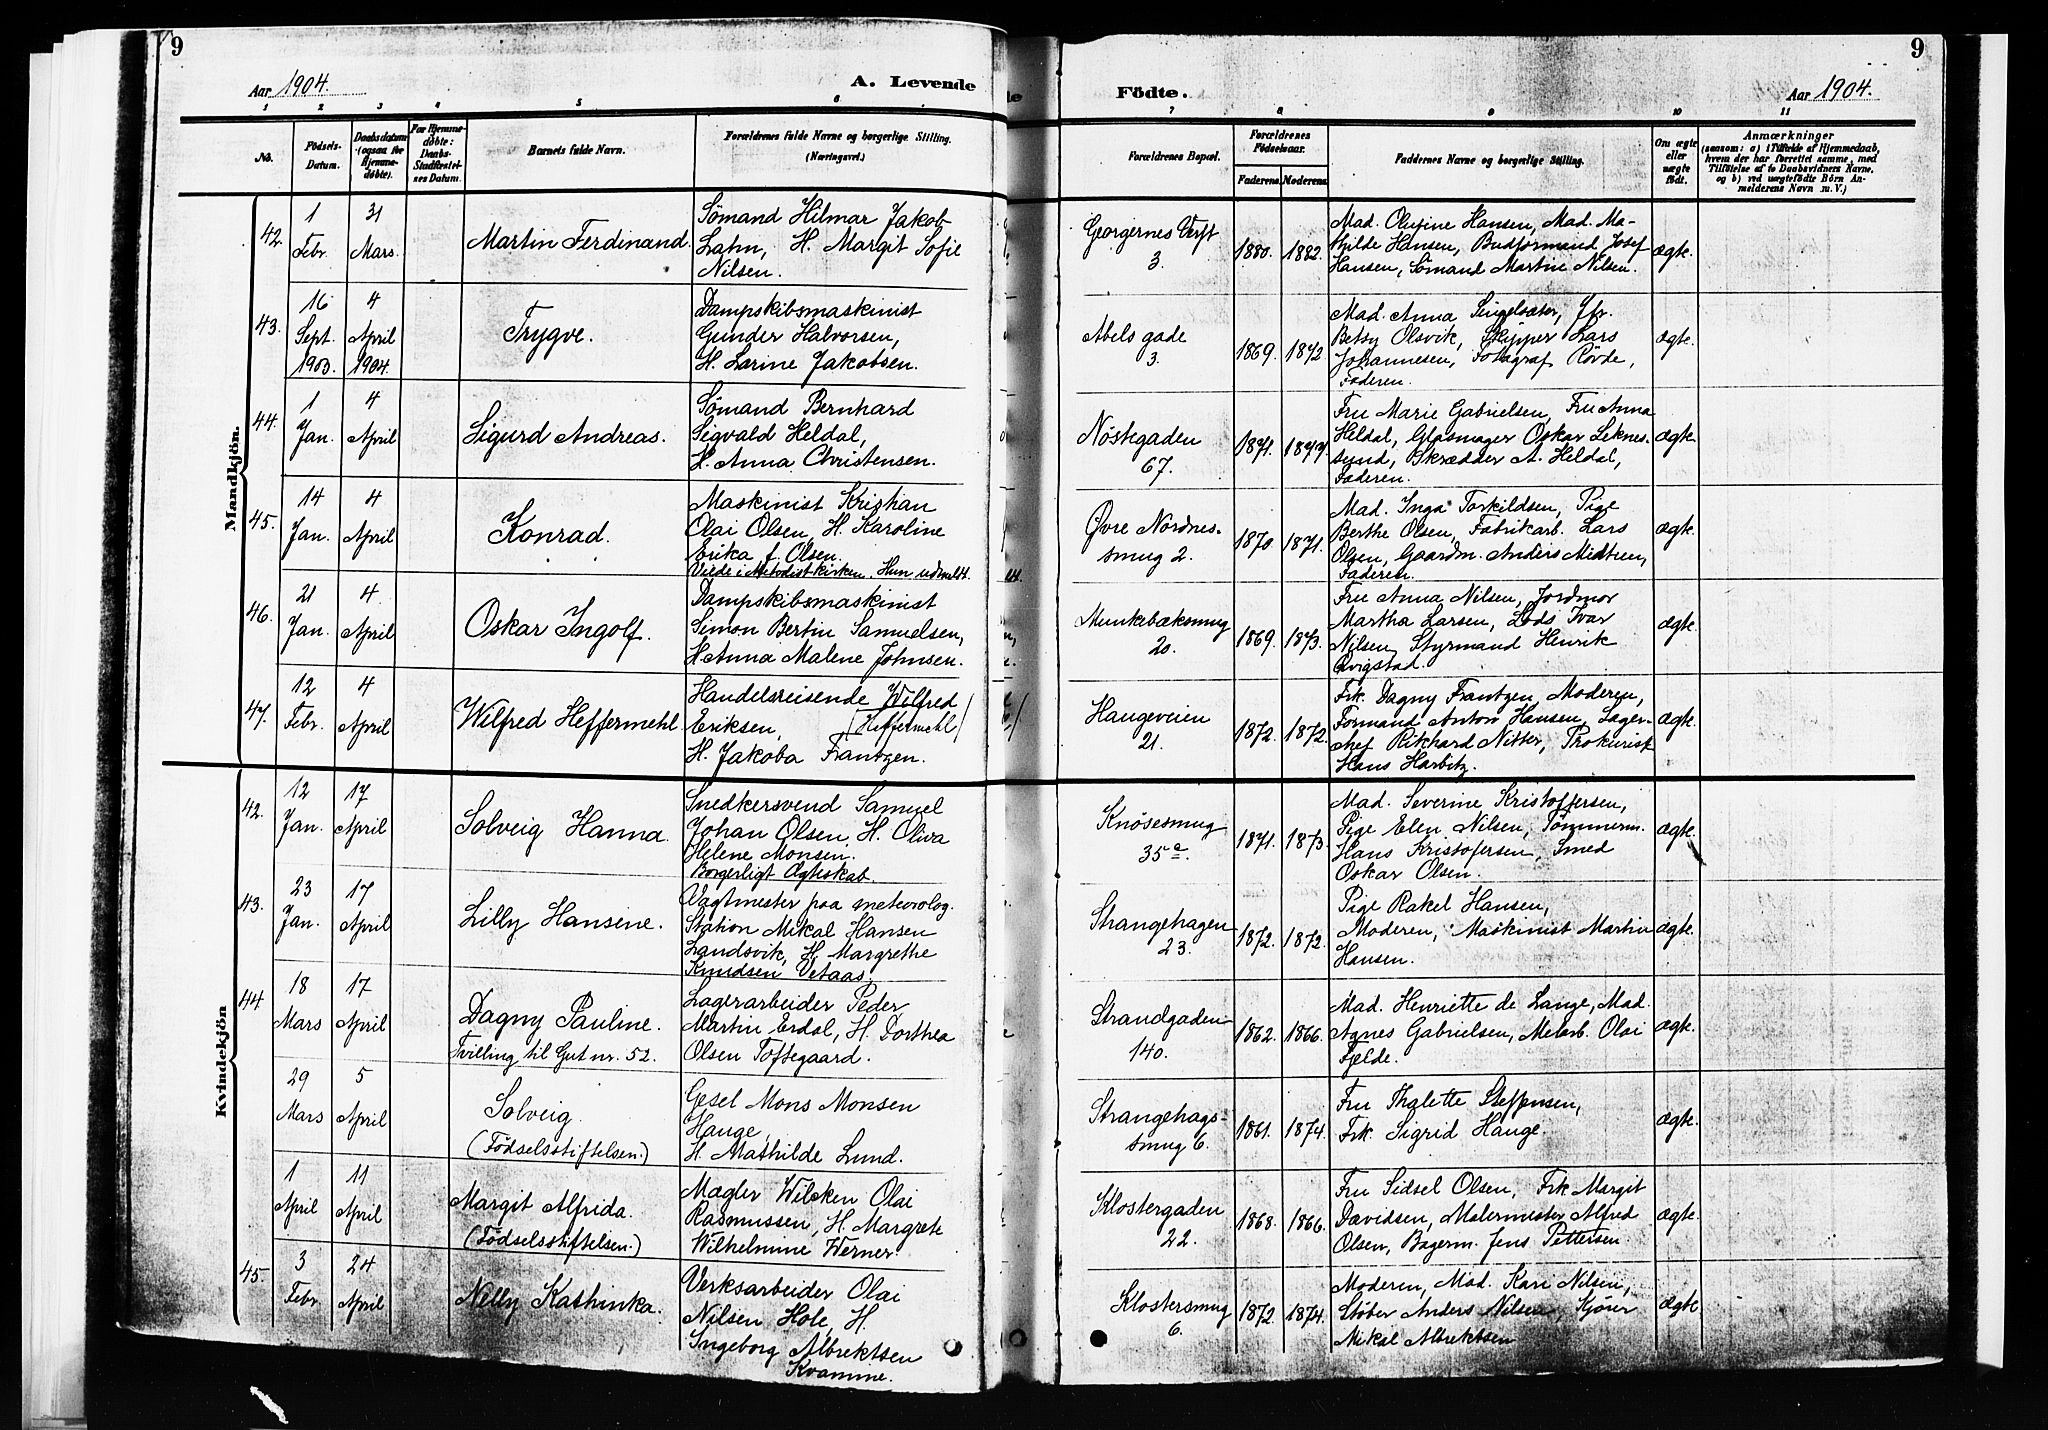 9
Aar 1904.
A. Levende
1 2 3 4 5 6
No.
Födsels-
Datum.
Daabsdatum
(ogsaa for
Hjemme-
döbte).
For Hjemme-
döbte:
Daabs-
Stadfæstel-
ses Datum.
Barnets fulde Navn.
Forældrenes fulde Navne og borgerlige Stilling.
(Næringsvei.)
Mandkjön.
42.
1
Febr.
31
Mars.
Martin Ferdinand.
Sømand Hilmar Jakob
Lahn, H. Margit Sofie
Nilsen.
43.
16
Sept.
1903.
4
April
1904.
Trygve.
Dampskibsmaskinist
Gunder Halvorsen,
H. Larine Jakobsen.
44.
1
Jan.
4
April
Sigurd Andreas.
Sømand Bernhard
Sigvald Heldal,
H. Anna Christensen.
45.
14
Jan.
4
April
Konrad.
Maskinist Kristian
Olai Olsen, H. Karoline
Erika f. Olsen.
Viede i Metodistkirken. Hun udmeldt.
46.
21
Jan.
4
April
Oskar Ingolf.
Dampskibsmaskinist
Simon Bertin Samuelsen,
H. Anna Malene Johnsen.
47.
12
Febr.
4
April
Wilfred Heffermehl
Handelsreisende Wilfred
Eriksen, /Heffermehl/
H. Jakoba Frantzen.
Kvindekjön
42.
12
Jan.
17
April
Solveig Hanna.
Snedkersvend Samuel
Johan Olsen, H. Oliva
Helene Monsen.
Borgerligt Ægteskab.
43.
23
Jan.
17
April
Lilly Hansine.
Vagtmester paa meteorolog.
Station Mikal Hansen
Landsvik, H. Margrethe
Knudsen Vetaas.
44
18
Mars
17
April
Dagny Pauline.
Tvilling til Gut nr. 52.
Lagerarbeider Peder
Martin Erdal, H. Dorthea
Olsen Toftegaard.
29
Mars
5
April
Solveig.
(Födselsstiftelsen.)
Gesel Mons Monsen
Hauge,
H. Mathilde Lund.
1
April
11
April
Margit Alfrida.
(Födselsstiftelsen.)
Mægler Wilcken Olai
Rasmussen, H. Margrete
Wilhelmine Werner.
45.
3
Febr.
24
April
Nelly Kathinka.
Verksarbeider Olai
Nilsen Hole, H.
Ingeborg Albrektsen
Kvamme.
9
Födte.
Aar 1904.
7 8 9 10 11
Forældrenes Bopæl.
Forældrenes
Födselsaar.
Faderens. Moderens.
Faddernes Navne og borgerlige Stilling.
Om ægte
eller
uægte
födt.
Anmærkninger
(saasom: a) i Tilfælde af Hjemmedaab,
hvem der har forrettet samme, med
Tilföielse af to Daabsvidners Navne,
og b) ved uægtefödte Börn An-
melderens Navn m. V.)
Georgernes Verft
3.
1880.
1882.
Mad. Olufine Hansen, Mad. Ma-
thilde Hansen, Budformand Josef
Hansen, Sømand Martin Nilsen.
ægte.
Abels gade
3.
1869.
1872
Mad. Anna Singelsæter, Jfr.
Betsy Olsvik, Skipper Lars
Johannesen, Fotograf Røvde,
Faderen.
ægte.
Nöstegaden
67.
1871.
1877.
Fru Marie Gabrielsen, Fru Anna
Heldal, Glasmager Oskar Leknes-
sund, Skrædder A. Heldal,
Faderen.
ægte.
Øvre Nordnes-
smug 2.
1870.
1871.
Mad. Inga Torkildsen, Pige
Berthe Olsen, Fabrikarb. Lars
Olsen, Gaardm. Anders Midtun,
Faderen.
ægte.
Munkebæksmug
20.
1869.
1873.
Fru Anna Nilsen, Jordmor
Martha Larsen, Lods Ivar
Nilsen, Styrmand Henrik
Qvigstad.
ægte.
Haugeveien
21.
1872.
1872.
Frk. Dagny Frantzen, Moderen,
Formand Anton Hansen, Lager-
chef Rikhard Nitter, Prokurist
Hans Harbitz.
ægte.
Knösesmug
35 a.
1871.
1873.
Mad. Severine Kristoffersen,
Pige Elen Nilsen, Tømmerm.
Hans Kristofersen, Smed
Oskar Olsen.
ægte.
Strangehagen
23.
1872.
1872.
Pige Rakel Hansen,
Moderen, Maskinist Martin
Hansen.
ægte.
Strandgaden
140.
1862.
1866.
Mad. Henriette de Lange, Mad.
Agnes Gabrielsen, Melarb. Olai
Fjelde.
ægte.
Strangehags-
smug 6.
1861.
1874.
Fru Thalette Steffensen,
Frk. Sigrid Hauge.
ægte.
Klostergaden
22.
1868.
1866.
Fru Sidsel Olsen, Frk Margit
Davidsen, Malermester Alfred
Olsen, Bagerm. Jens Pettersen.
ægte.
Klostersmug
6.
1872.
1874.
Moderen, Mad. Kari Nilsen,
Støber Anders Nilsen, Kjører
Mikal Albrektsen
ægte